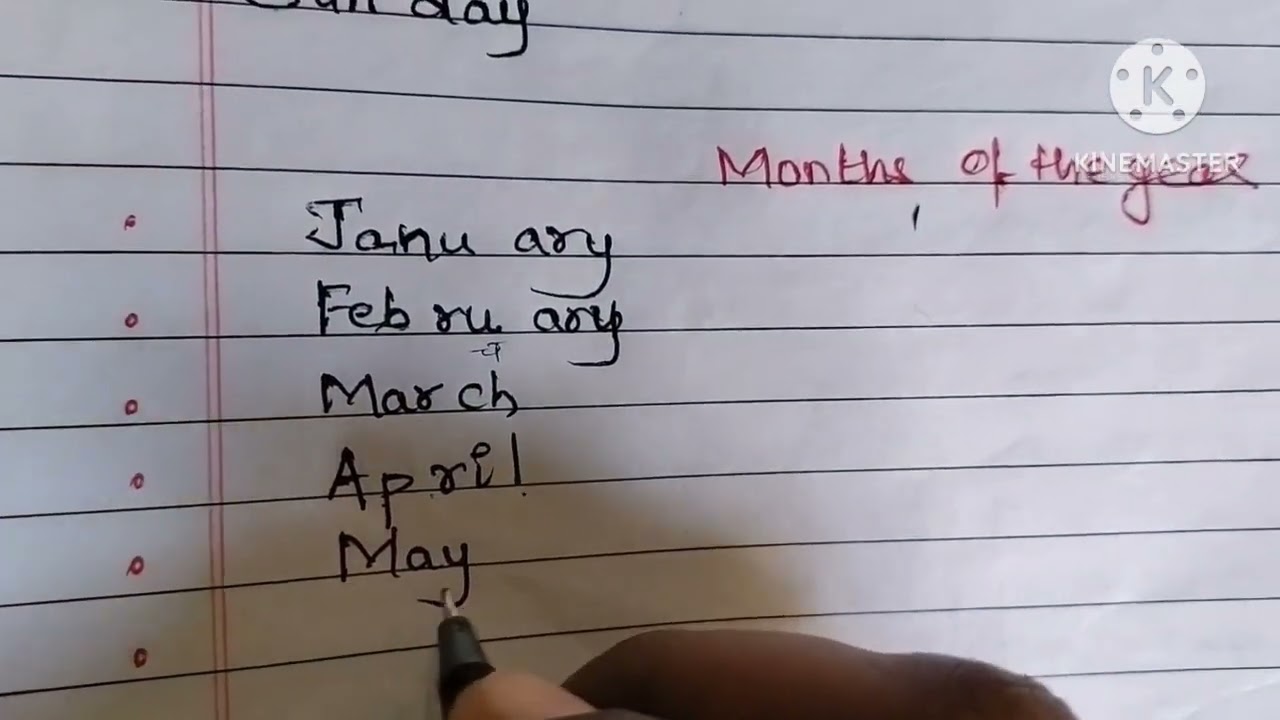 Sun day
K
KINEMASTER
Months of the year
Janu ary
Feb ru ary
च
March
April
May